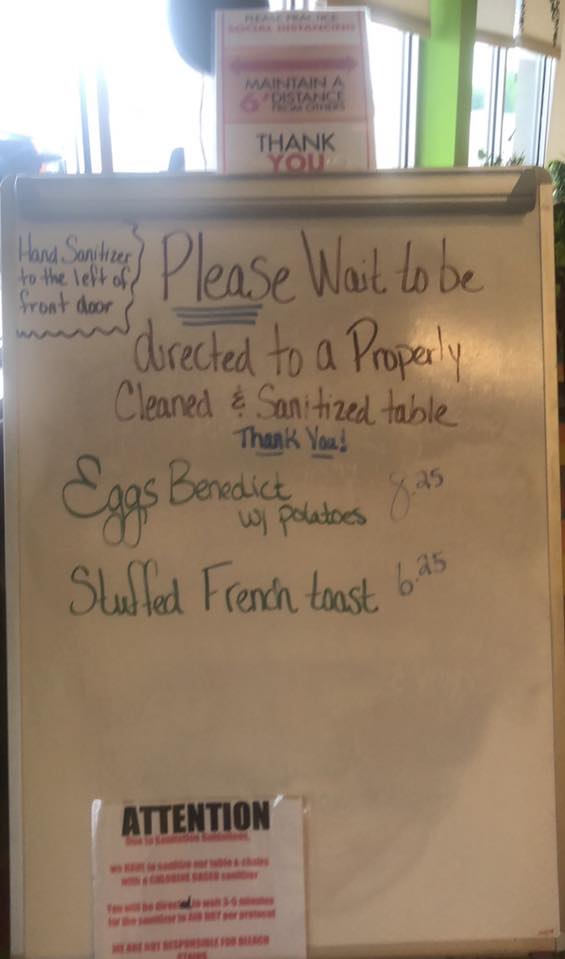 PLEASE PRACTICE
SOCIAL DISTANCING
MAINTAIN A
6' DISTANCE
FROM OTHERS
THANK
YOU
Hand Sanitizer
to the left of
front door
Please Wait to be
directed to a Properly
Cleaned & Sanitized table
Thank You!
Eggs Benedict
w/ potatoes 8.25
Stuffed French toast 6.25
ATTENTION
Due to Sanitation Guidelines,
we HAVE to sanitize our table & chairs
with a CHLORINE BASED sanitizer
You will be directed to wait 3-5 minutes
for the sanitizer to AIR DRY per protocol
WE ARE NOT RESPONSIBLE FOR BLEACH
STAINS